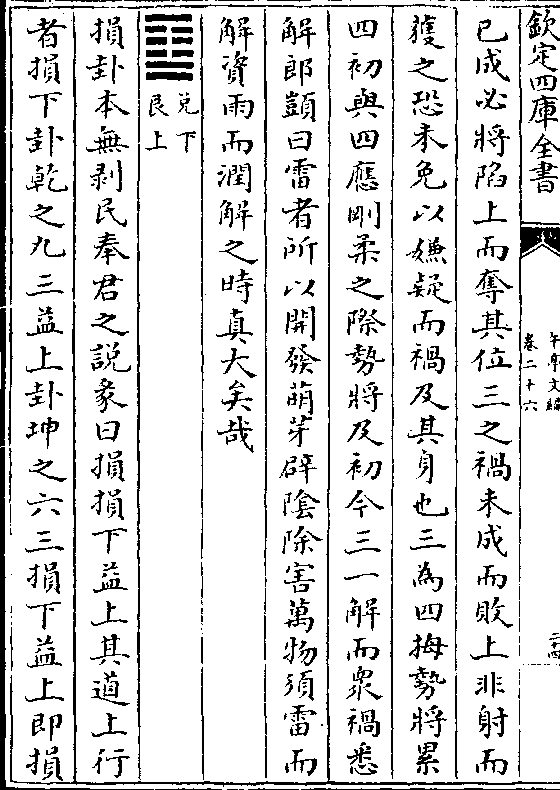 欽定四庫全書
午亭文編
卷二十六
二十四
已成必將陷上而奪其位三之禍未成而敗上非射而
獲之恐未免以嫌疑而禍及其身也三為四拇勢將累
四初與四應剛柔之際勢將及初今三一解而衆禍悉
解郎顗曰雷者所以開發萌芽辟隂除害萬物須雷而
解資雨而潤解之時真大矣哉
兑下
艮上
損卦本無剥民奉君之説彖曰損損下益上其道上行
者損下卦乾之九三益上卦坤之六三損下益上即損